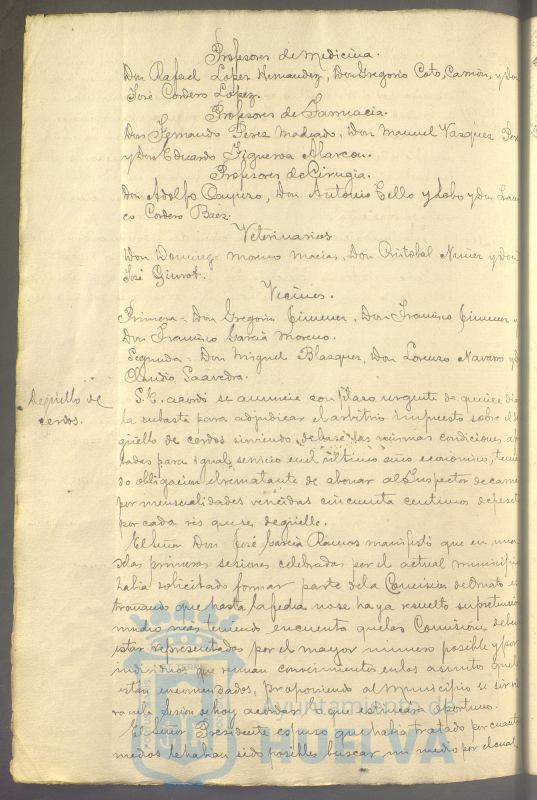 Profesores de Medicina.
Don Rafael Lopez Hernandez, Don Gregorio Coto, Camón, y Don
José Cordero Lopez.
Profesores de Farmacia.
Don Fernando Perez Madrado, Don Manuel Vasquez Per
y Don Eduardo Figueroa Alarcon.
Profesores de Cirugia.
Don Adolfo Don Antonio Tello y Lobo y Don
co Cordero Baez.
Veterinarios
Don Domingo Moreno Macias, Don Cristobal Nuñez y Don
José Giurot.
Vecinos.
Primera = Don Gregorio Jimenez, Don Francisco Jimenez y
Don Francisco Garcia Moreno.
Segunda = Don Miguel Blasquez, Don Lorenzo Navarro y
Claudio Saavedra.
Degüello de
cerdos.
S. E. acordó se anuncie con plazo urgente de quince dia
la subasta para adjudicar el arbitrio impuesto sobre el
güello de cerdos sirviendo de base las mismas condiciones
tadas para igual servicio en el ultimo año economico, tenien
do obligacion el rematante de abonar al Inspector de carne
por mensualidades vencidas cincuenta centimos de peseta
por cada res que se degüelle.
El Señor Don José Garcia Ramos manifestó que en una
de las primeras sesiones celebradas por el actual municipio
habia solicitado formar parte de la Comision de Ornato es
trañando que hasta la fecha no se haya resuelto su pretension
mucho mas teniendo en cuenta que las Comisiones deben
estar representadas por el mayor número posible y por
individuos que reunan conocimientos en los asuntos que
estan encomendados, proponiendo al Municipio se sir
va en la sesion de hoy acordar lo que estimara oportuno.
El Señor Presidente espuso que habia tratado por cuanto
medios le habian sido posibles buscar un medio por el cual
Ayuntamiento de
HUELVA